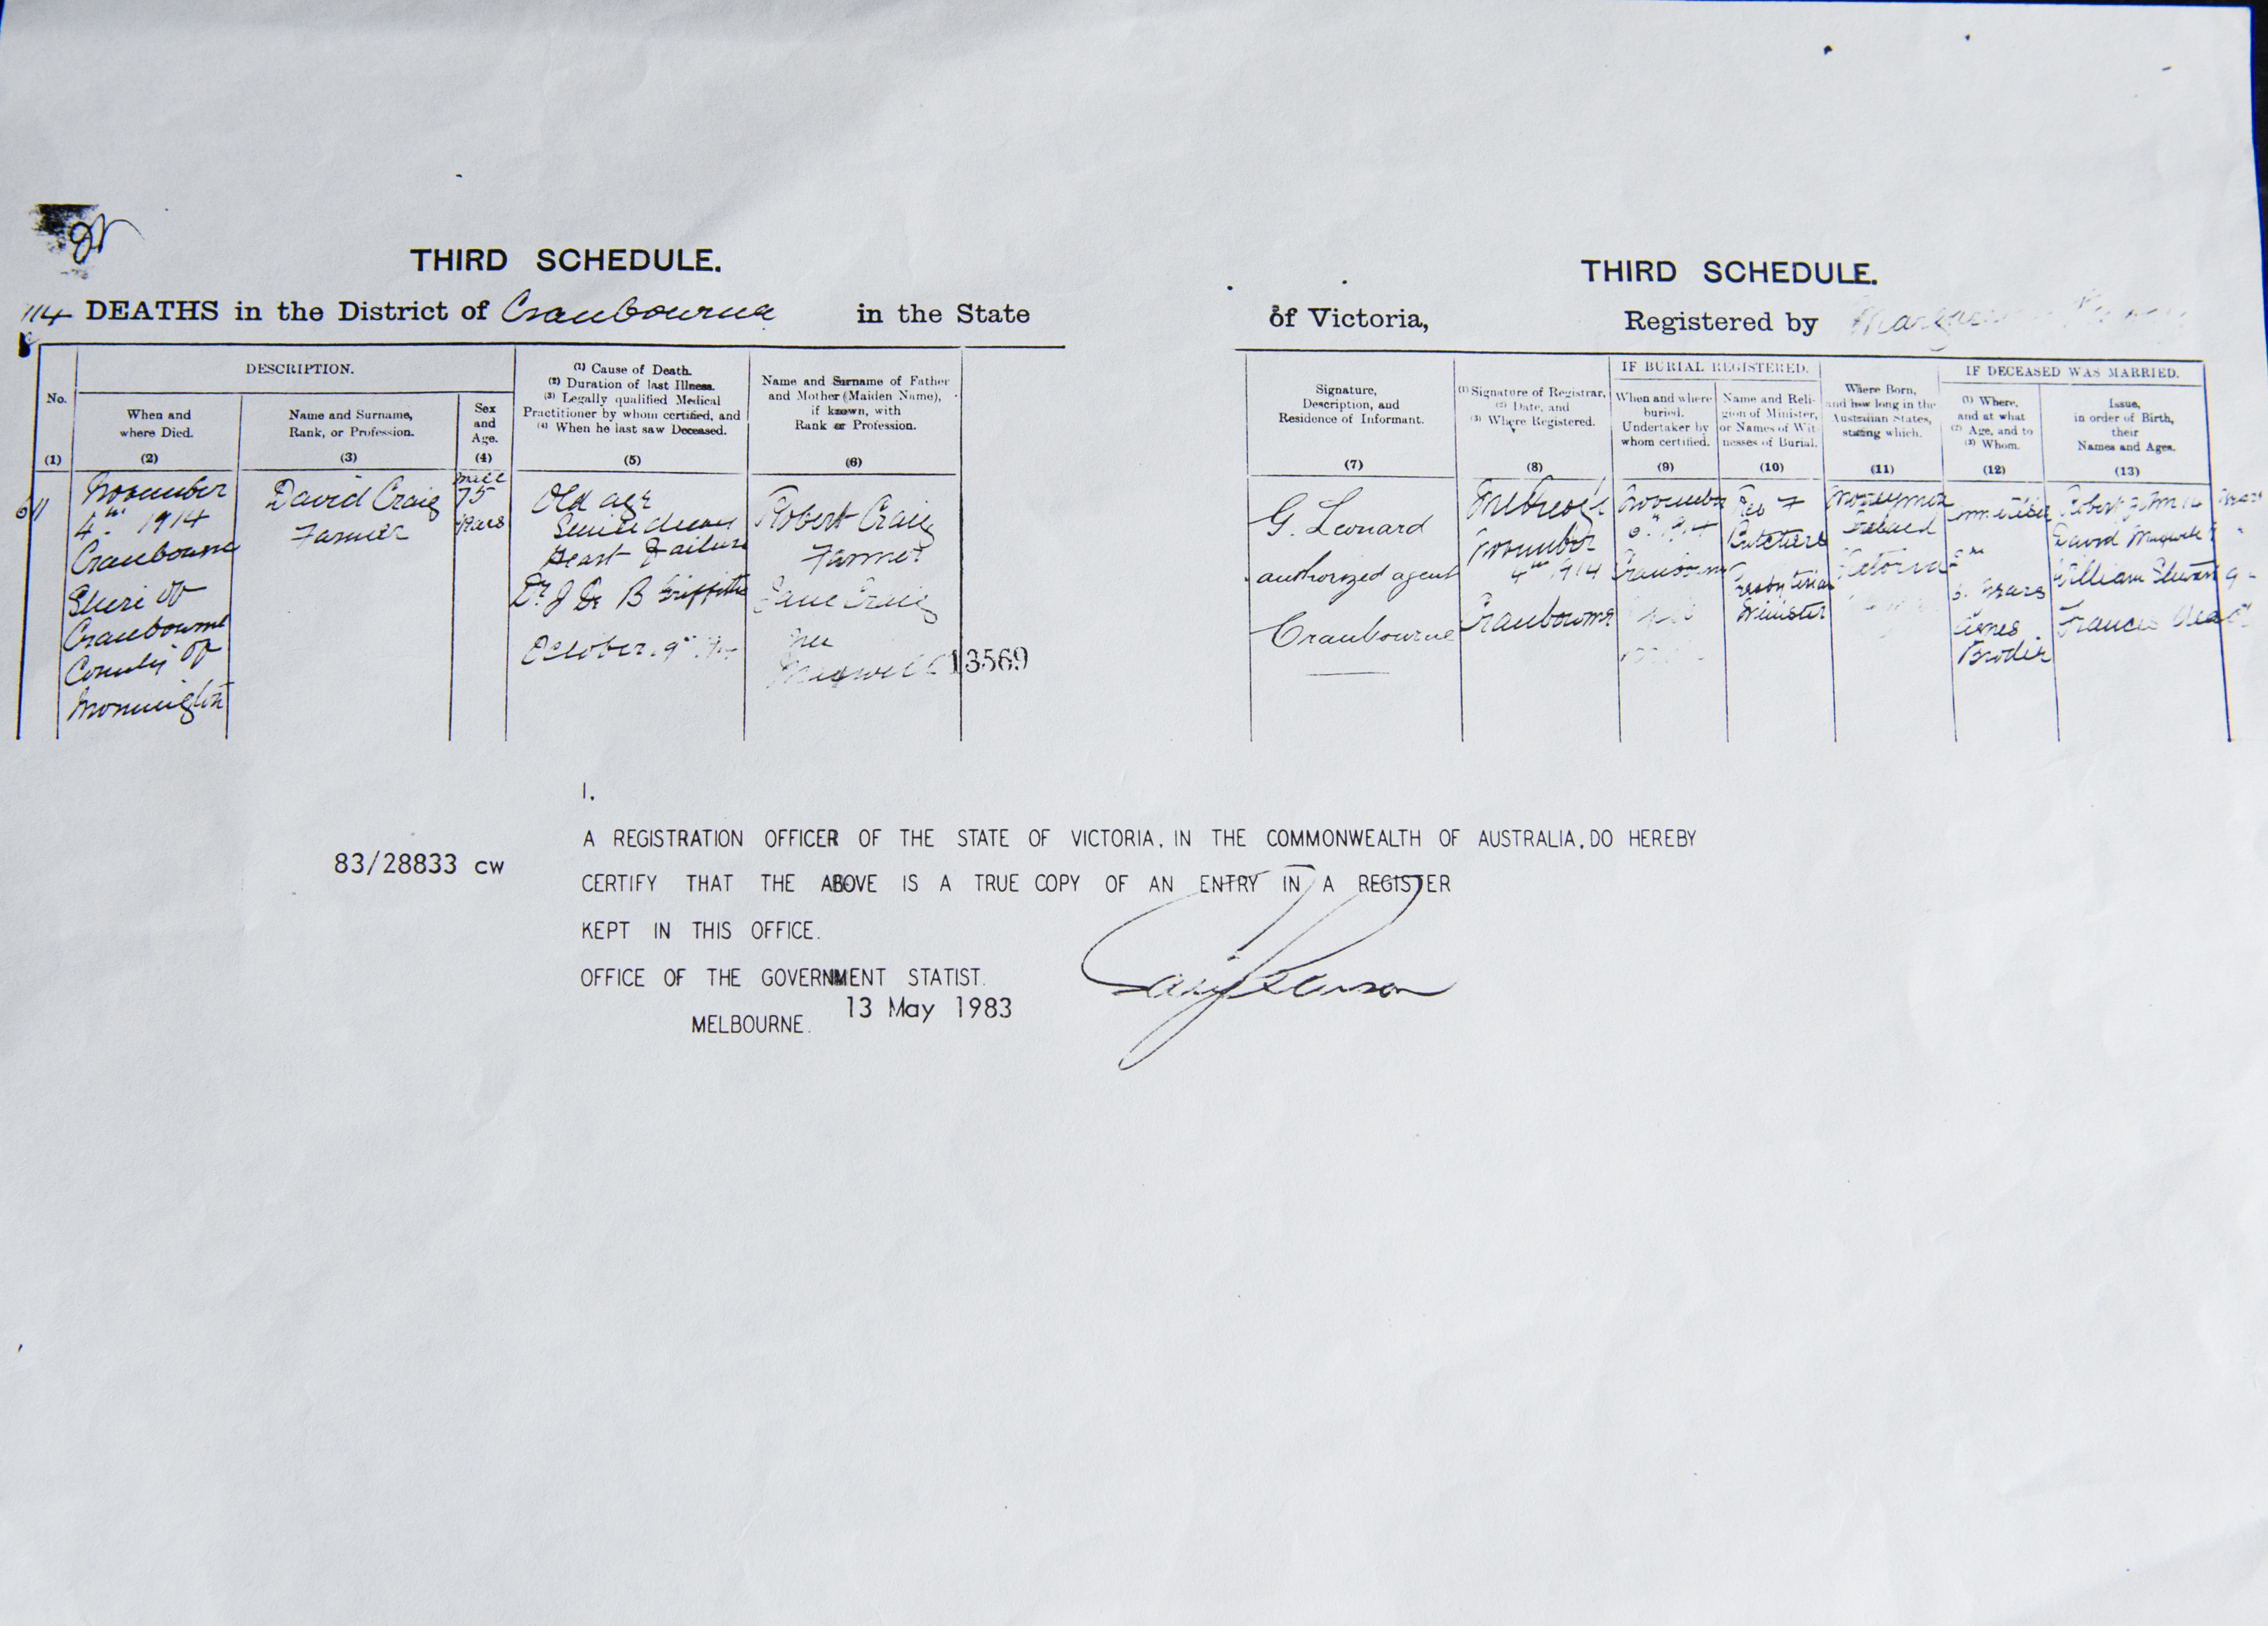 THIRD SCHEDULE.
114 DEATHS in the District of Cranbourne in the State
No.
(1)
DESCRIPTION.
When and
where Died.
(2)
Name and Surname,
Rank, or Profession.
(3)
Sex
and
Age.
(4)
(1) Cause of Death.
(2) Duration of last Illness.
(3) Legally qualified Medical
Practitioner by whom certified, and
(4) When he last saw Deceased.
(5)
Name and Surname of Father
and Mother (Maiden Name),
if known, with
Rank or Profession.
(6)
November
4th 1914
Cranbourne
Shire of
Cranbourne
County of
Mornington
David Craig
Farmer
Male
75
years
Old age
Senile decay
Heart Failure
Dr J De B Griffiths
October 9th
Robert Craig
Farmer
Jane Craig
nee
Maxwell
13569
THIRD SCHEDULE.
of Victoria, Registered by
Signature,
Description, and
Residence of Informant.
(7)
(1) Signature of Registrar,
(2) Date, and
(3) Where Registered.
(8)
IF BURIAL REGISTERED.
When and where
buried.
Undertaker by
whom certified.
(9)
Name and Reli-
gion of Minister,
or Names of Wit-
nesses of Burial.
(10)
Where Born,
and how long in the
Australian States,
stating which.
(11)
IF DECEASED WAS MARRIED.
(1) Where,
and at what
(2) Age, and to
(3) Whom.
(12)
Issue,
in order of Birth,
their
Names and Ages.
(13)
G. Leonard
authorized agent
Cranbourne
November
4th 1914
Cranbourne
November
Cranbourne
Rev F
Presbyterian
Minister
Ireland
Victoria
years
Agnes
Brodie
Robert John
David Maxwell
William Stewart 9
Frances dead
I,
A REGISTRATION OFFICER OF THE STATE OF VICTORIA, IN THE COMMONWEALTH OF AUSTRALIA, DO HEREBY
83/28833 CW
CERTIFY THAT THE ABOVE IS A TRUE COPY OF AN ENTRY IN A REGISTER
KEPT IN THIS OFFICE.
OFFICE OF THE GOVERNMENT STATIST.
MELBOURNE. 13 May 1983